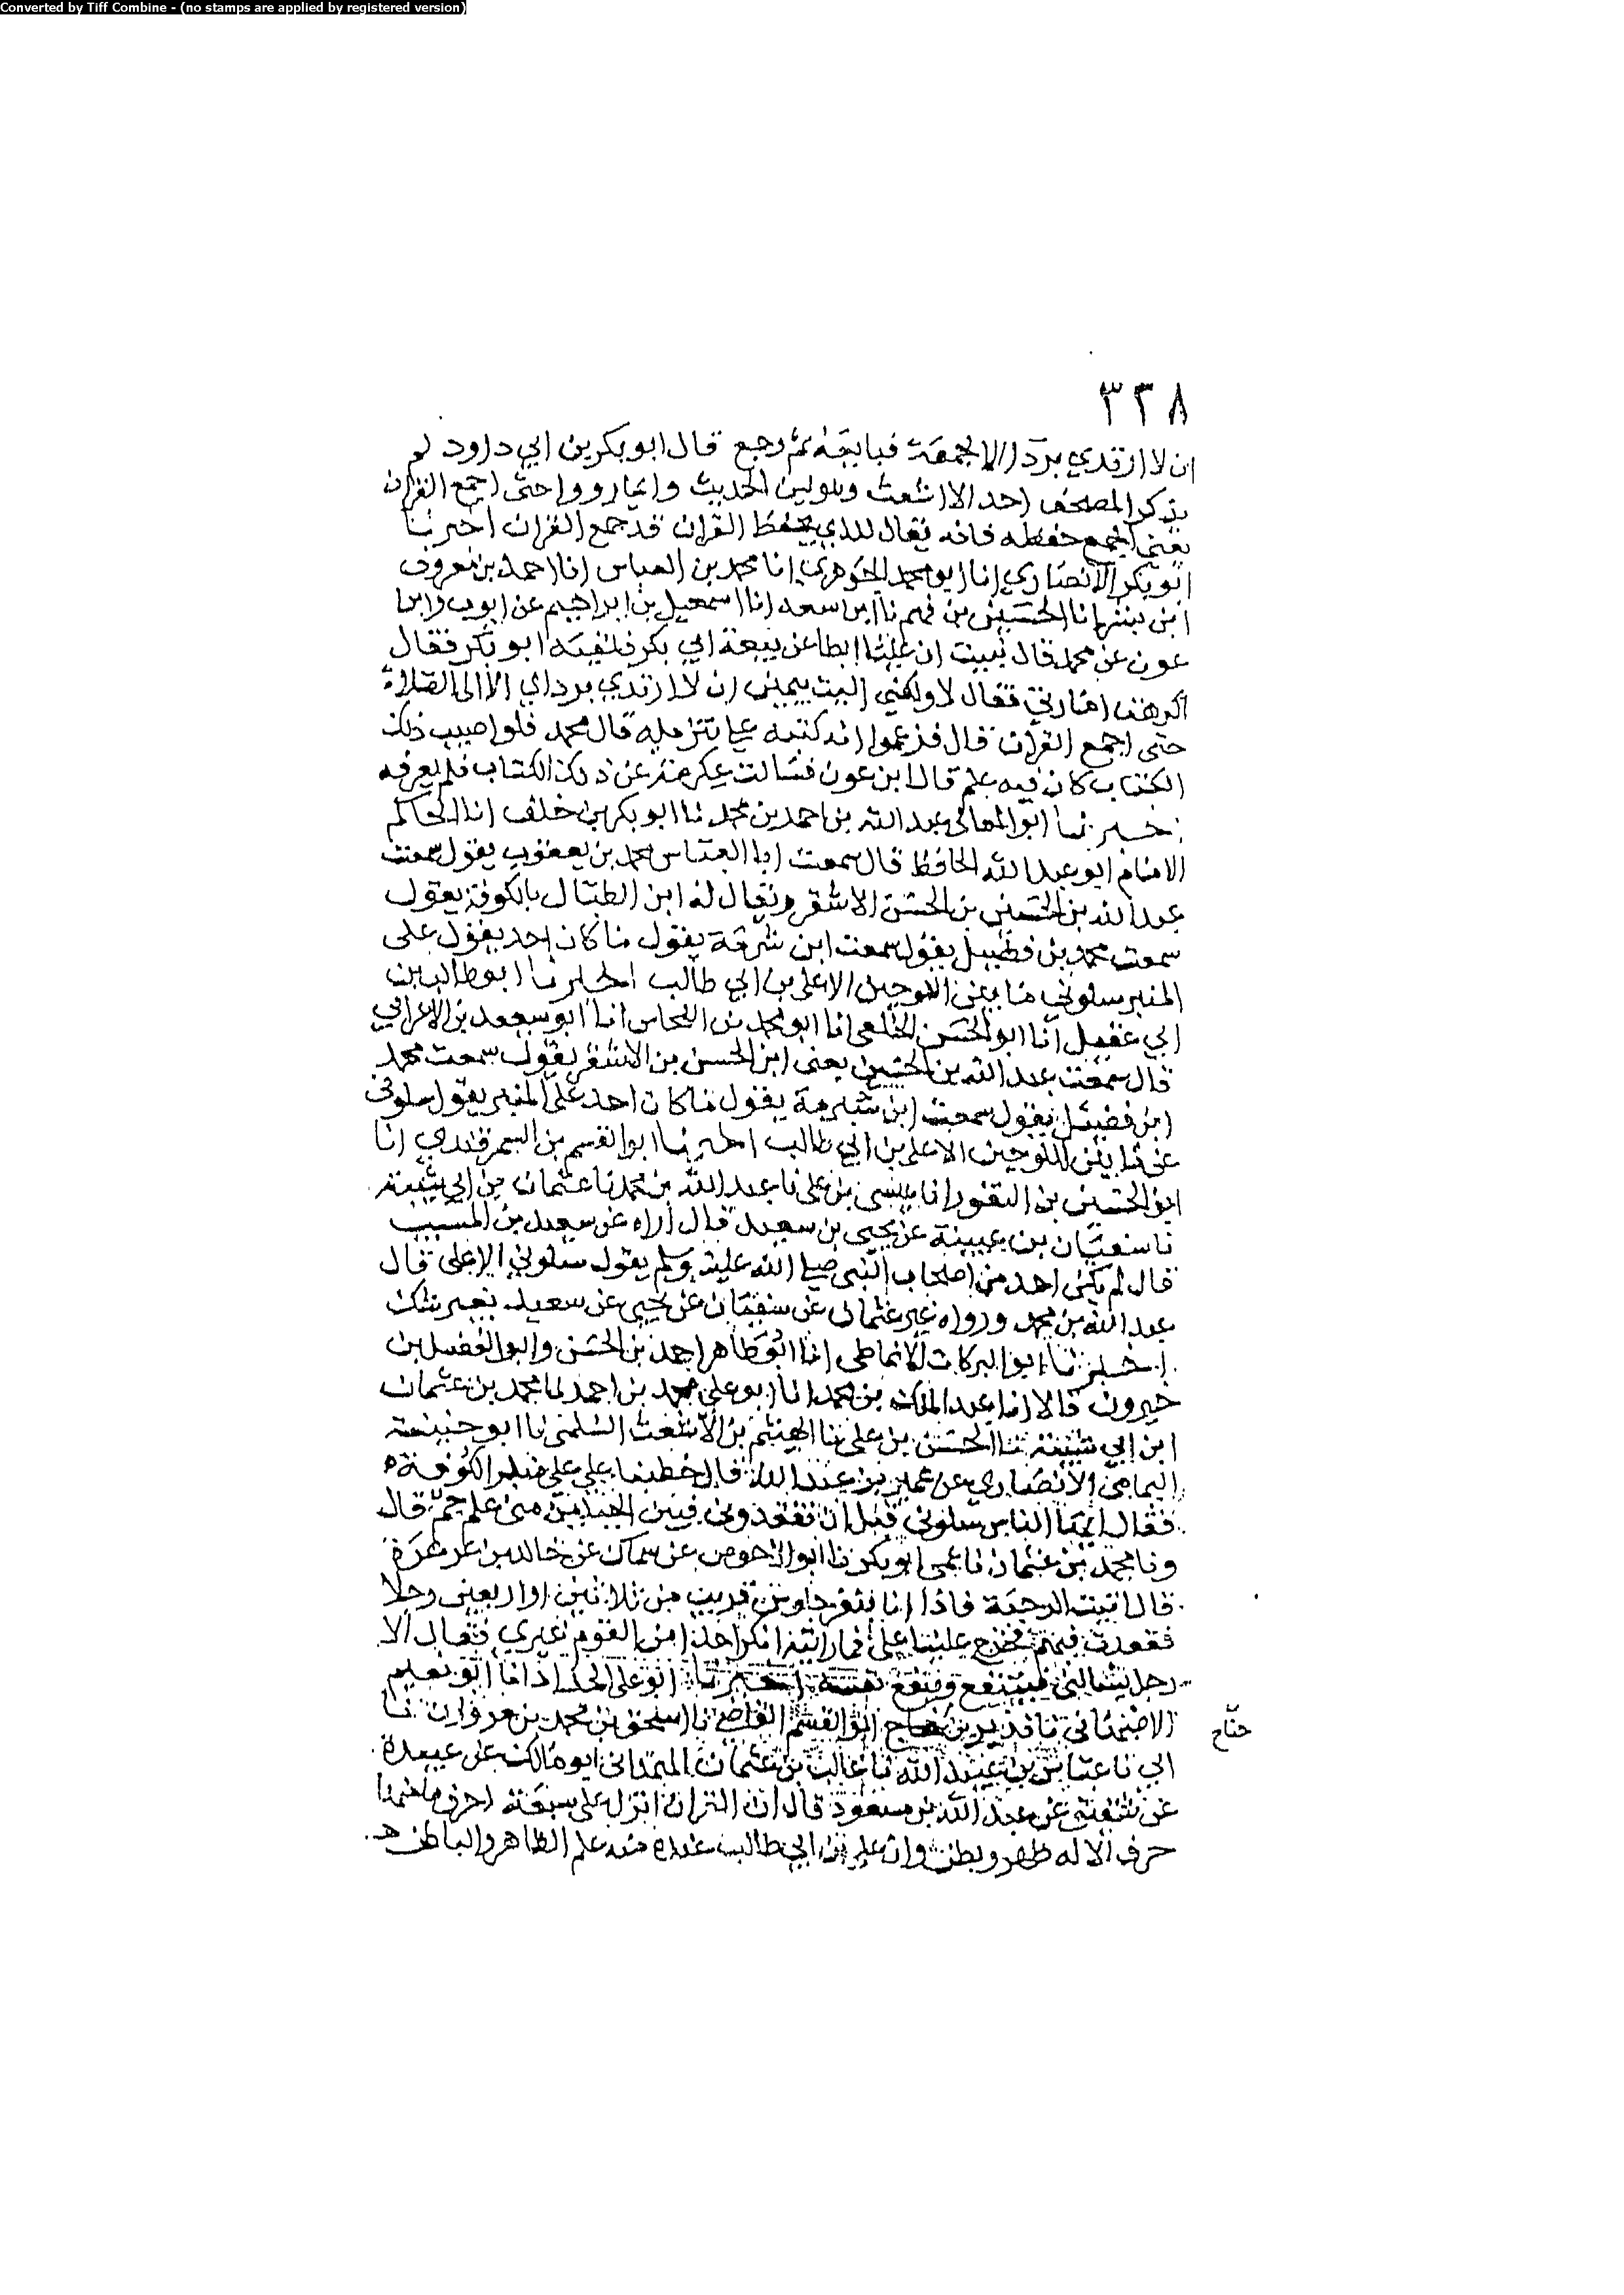 Converted by Tiff Combine - (no stamps are applied by registered version)
٣٣٨
ان لا ارتدي بردا الا لجمعة فبايعه ثم رجع قال ابو بكر بن ابي داود لم
يذكر المصحف احد الا اشعث وهو لين الحديث وانما رووا حتى اجمع القران
يعني اتم حفظه فانه يقال للذي يحفظ القران قد جمع القران اخبرنا
ابو بكر الانصاري انا ابو محمد الجوهري انا محمد بن العباس انا احمد بن معروف
ابن بشر انا الحسين بن فهم نا ابن سعد انا اسمعيل بن ابراهيم عن ايوب وابن
عون عن محمد قال نبيت ان عليا ابطا عن بيعة ابي بكر فلقيه ابو بكر فقال
اكرهت امارتي فقال لا ولكني اليت بيمين ان لا ارتدي بردائي الا الى الصلاة
حتى اجمع القران قال فزعموا انه كتبه على تنزيله قال محمد فلو اصيب ذلك
الكتاب كان فيه علم قال ابن عون فسالت عكرمة عن ذلك الكتاب فلم يعرفه
اخبرنا ابو المعالي عبد الله بن احمد بن محمد نا ابو بكر بن خلف انا الحاكم
الامام ابو عبد الله الحافظ قال سمعت ابا العباس محمد بن يعقوب يقول سمعت
عبد الله بن الحسين بن الحسن الاشقر ويقال له ابن الطبال بالكوفة يقول
سمعت محمد بن فضيل يقول سمعت ابن شبرمة يقول ما كان احد يقول على
المنبر سلوني ما بين اللوحين الا علي بن ابي طالب اخبرنا ابو طالب بن
ابي عقيل انا ابو الحسن الخلعي انا ابو محمد بن النحاس انا ابو سعيد بن الاعرابي
قال سمعت عبد الله بن الحسين يعني ابن الحسن بن الاشقر يقول سمعت محمد
ابن فضيل يقول سمعت ابن شبرمة يقول ما كان احد على المنبر يقول سلوني
عن ما بين اللوحين الا علي بن ابي طالب اخبرنا ابو القسم بن السمرقندي انا
ابو الحسين بن النقور انا عيسى بن علي نا عبد الله بن محمد نا عثمان بن ابي شيبة
نا سفيان بن عيينة عن يحيى بن سعيد قال اراه عن سعيد بن المسيب
قال لم يكن احد من اصحاب النبي صلى الله عليه وسلم يقول سلوني الا علي قال
عبد الله بن محمد ورواه غير عثمان عن سفيان عن يحيى عن سعيد بغير شك
اخبرنا ابو البركات الانماطي انا ابو طاهر احمد بن الحسن وابو الفضل بن
خيرون قالا انا عبد الملك بن محمد انا ابو علي محمد بن احمد نا محمد بن عثمان
ابن ابي شيبة نا الحسن بن علي نا الهيثم بن الاشعث السلمي نا ابو حنيفة
اليمامي الانصاري عن عمير بن عبد الله قال خطبنا علي على منبر الكوفة
فقال ايها الناس سلوني قبل ان تفقدوني فبين الجنبين مني علم جم قال
ونا محمد بن عثمان نا عمي ابو بكر نا ابو الاحوص عن سماك عن خالد بن عرعرة
قال اتيت الرحبة فاذا انا بنفر جلوس قريب من ثلاثين او اربعين رجلا
فقعدت فيهم فخرج علينا علي فما رايته انكر احدا من القوم غيري فقال الا
رجل يسالني فينتفع وينفع نفسه اخبرنا ابو علي الحداد انا ابو نعيم
الاصبهاني نا نذير بن جناح ابو القسم القاضي نا اسحق بن محمد بن مروان نا
جناح
ابي نا عباس بن عبيد الله نا غالب بن عثمان الهمداني ابو مالك عن عبيدة
عن شقيق عن عبد الله بن مسعود قال ان القران انزل على سبعة احرف ما منها
حرف الا له ظهر وبطن وان علي بن ابي طالب عنده منه علم الظاهر والباطن